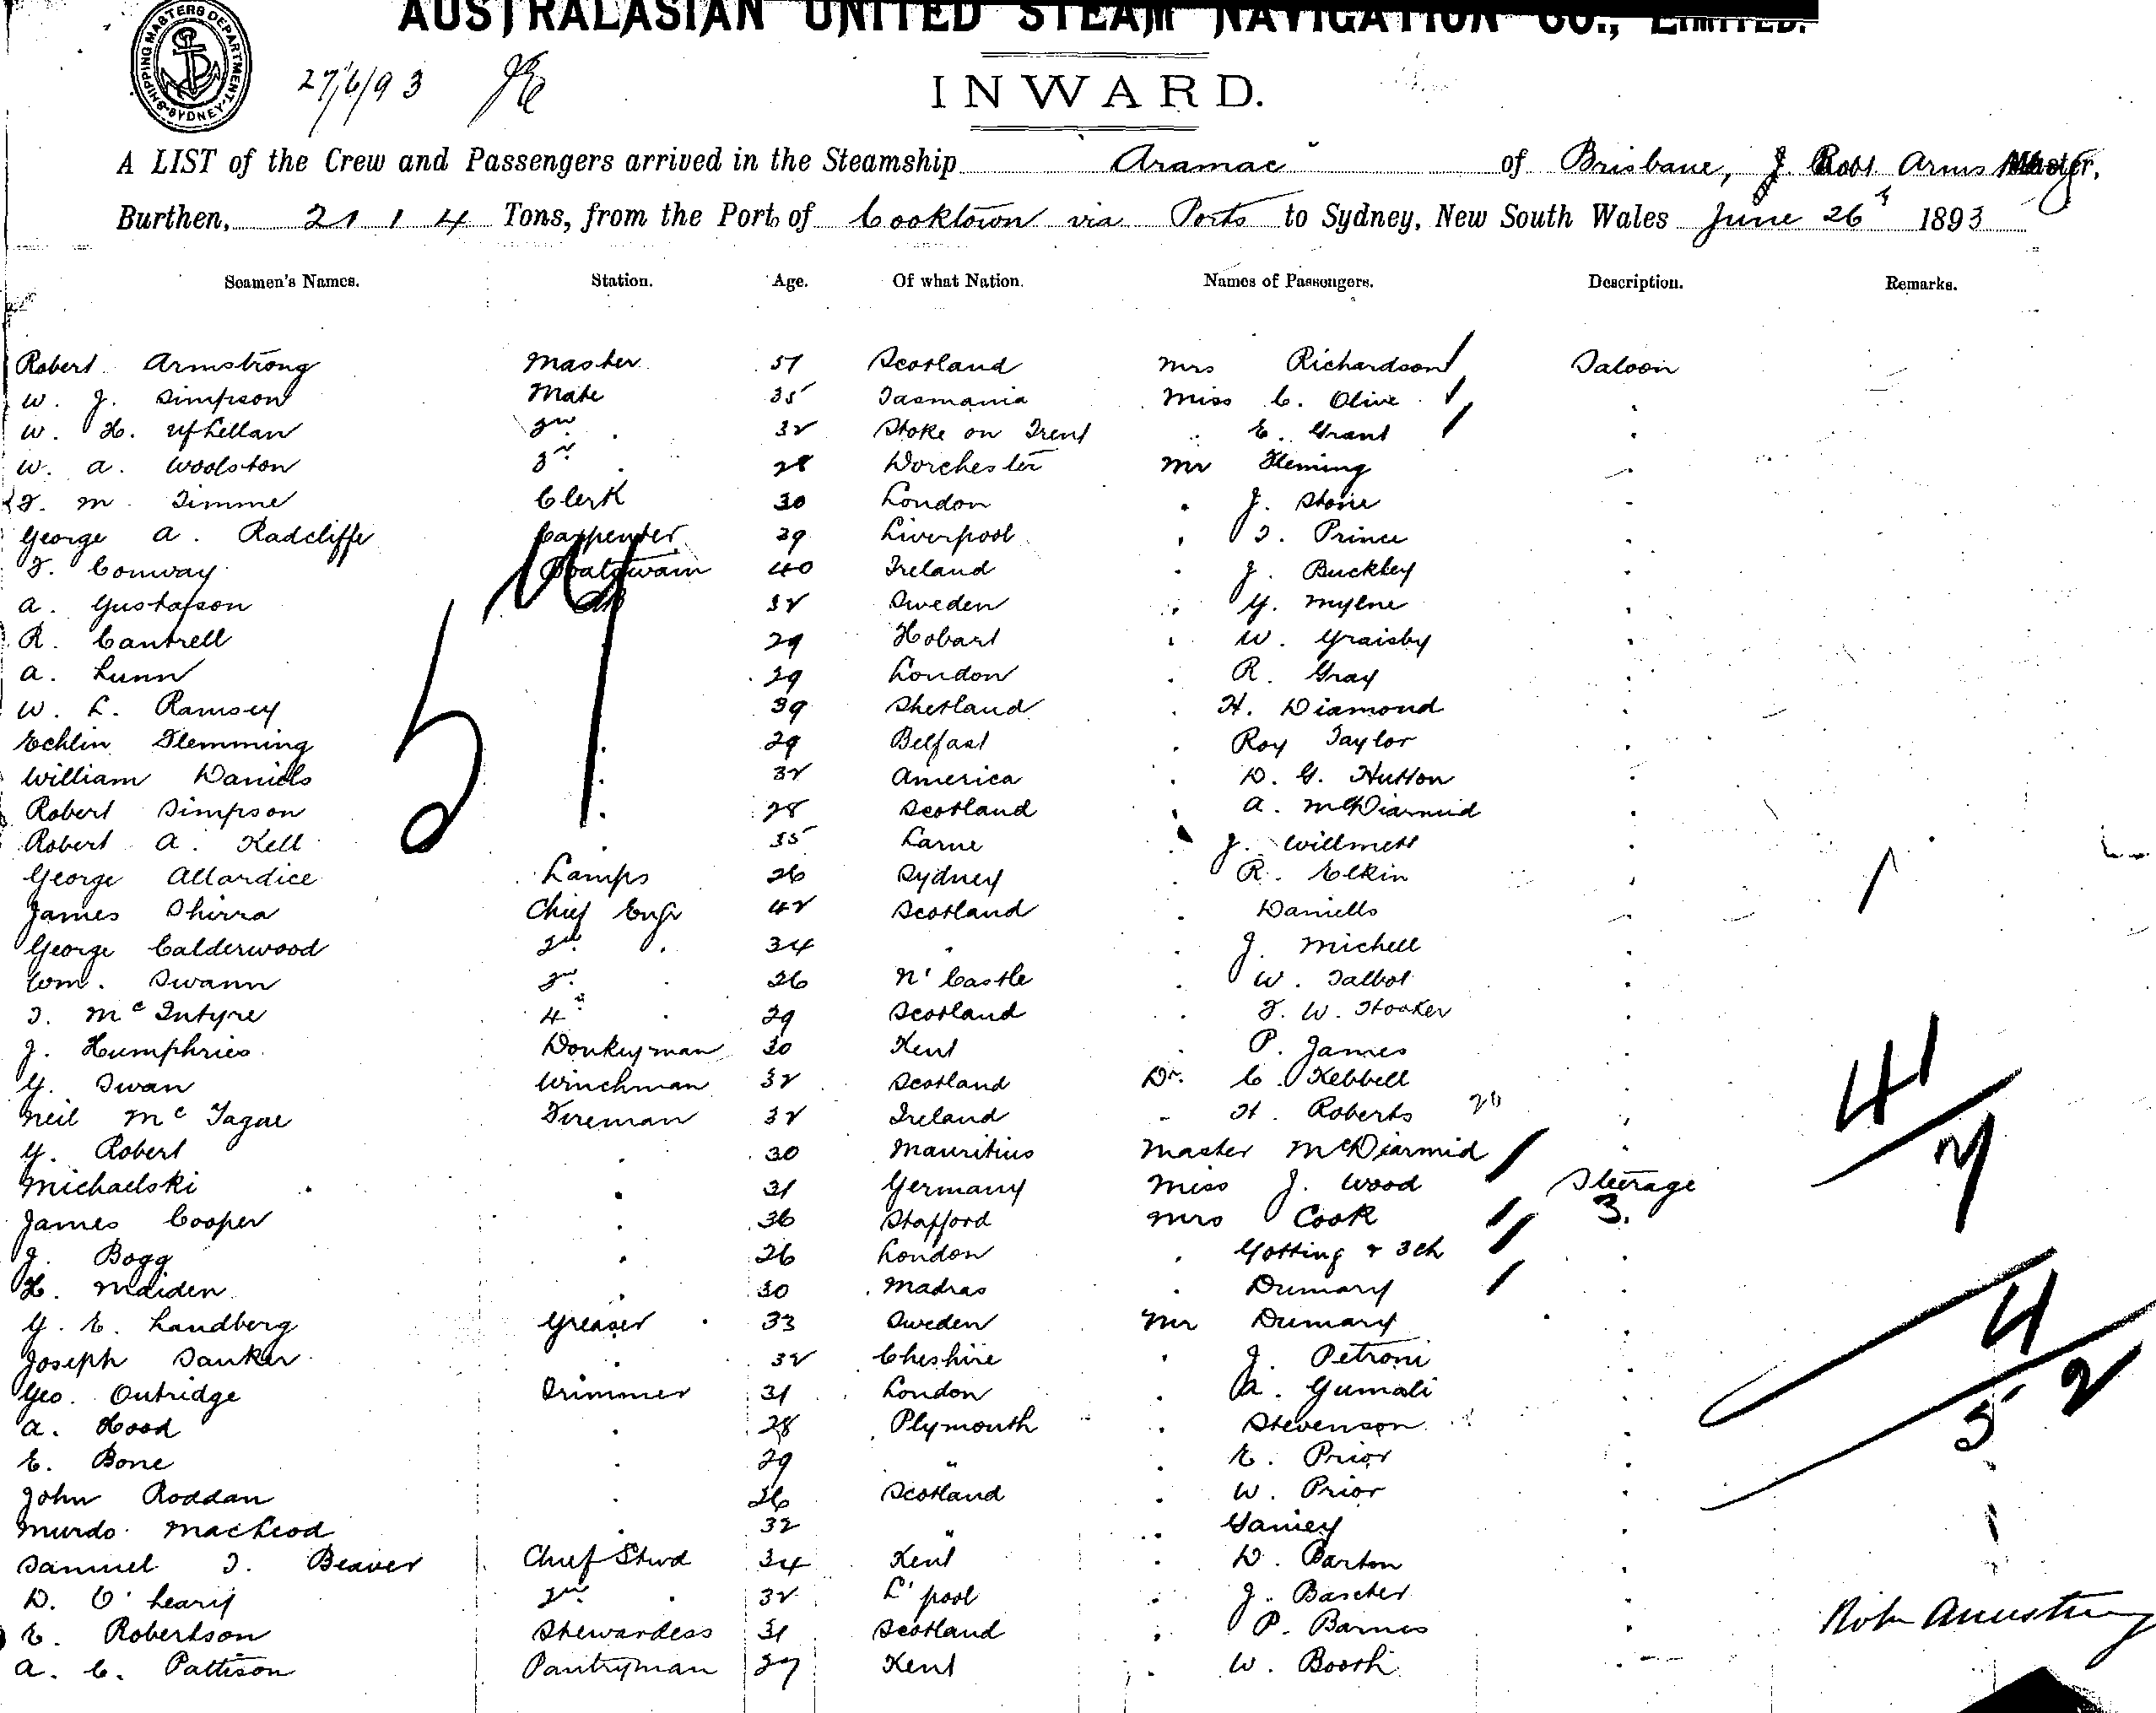 AUSTRALASIAN UNITED STEAM NAVIGATION CO., LIMITED.
SHIPPING MASTERS DEPARTMENT SYDNEY
27/6/93
INWARD.
A LIST of the Crew and Passengers arrived in the Steamship Aramac of Brisbane, J. Robt. Armstrong Master,
Burthen, 2114 Tons, from the Port of Cooktown via Ports to Sydney, New South Wales June 26th 1893
Seamen's Names. Station. Age. Of what Nation. Names of Passengers. Description. Remarks.
Robert Armstrong Master 51 Scotland Mrs Richardson Saloon
W. J. Simpson Mate 35 Tasmania Miss C. Olive
W. H. 2nd 32 Stoke on Trent " E. Grant
W. A. Woolston 3rd 28 Dorchester Mr Fleming
F. M. Timme Clerk 30 London " J. Stone
George A. Radcliffe Carpenter 39 Liverpool " T. Prince
F. Conway Boatswain 40 Ireland " J. Buckley
A. Gustafson AB 32 Sweden " G. Mylne
R. Cantrell 29 Hobart " W. Graisby
A. Lunn 39 London " R. Gray
W. L. Ramsey 39 Shetland " H. Diamond
Echlin Flemming 29 Belfast " Roy Taylor
William Daniels 32 America " D. G. Hutton
Robert Simpson 28 Scotland " A. McDiarmid
Robert A. Kell 35 Larne " J. Willmett
George Allardice Lamps 26 Sydney " R. Elkin
James Shirra Chief Engr 42 Scotland " Daniells
George Calderwood 2nd " 34 " " J. Michell
Wm. Swann 3rd " 26 N'Castle " W. Talbot
T. McIntyre 4th " 29 Scotland " F. W. Hooker
J. Humphries Donkeyman 30 Kent " P. James
G. Swan Winchman 32 Scotland Dr. C. Kebbell
Neil McTague Fireman 32 Ireland " H. Roberts
G. Robert " 30 Mauritius Master McDiarmid
Michaelski " 31 Germany Miss J. Wood Steerage
James Cooper " 36 Stafford Mrs Cook 3.
J. Bogg " 26 London " Gotting & 3 ch
H. Maiden " 30 Madras " Dumary
G. E. Landberg Greaser 33 Sweden Mr Dumary
Joseph Sanker " 32 Cheshire " J. Petroni
Geo. Outridge Trimmer 31 London " A. Gumali
A. Hood " 28 Plymouth " Stevenson
E. Bone " 29 " " E. Prior
John Roddan " 26 Scotland " W. Prior
Murdo MacLeod " 32 " " Ganey
Samuel T. Beaver Chief Stwd 34 Kent " D. Barton
D. O'Leary 2nd " 32 L'pool " J. Bascher
E. Robertson Stewardess 31 Scotland " P. Barnes
A. C. Pattison Pantryman 27 Kent " W. Booth
51
41
7
4
5 2
Robt Armstrong